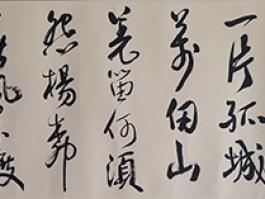 一片孤城
萬仞山
羌笛何須
怨楊柳
春風不度